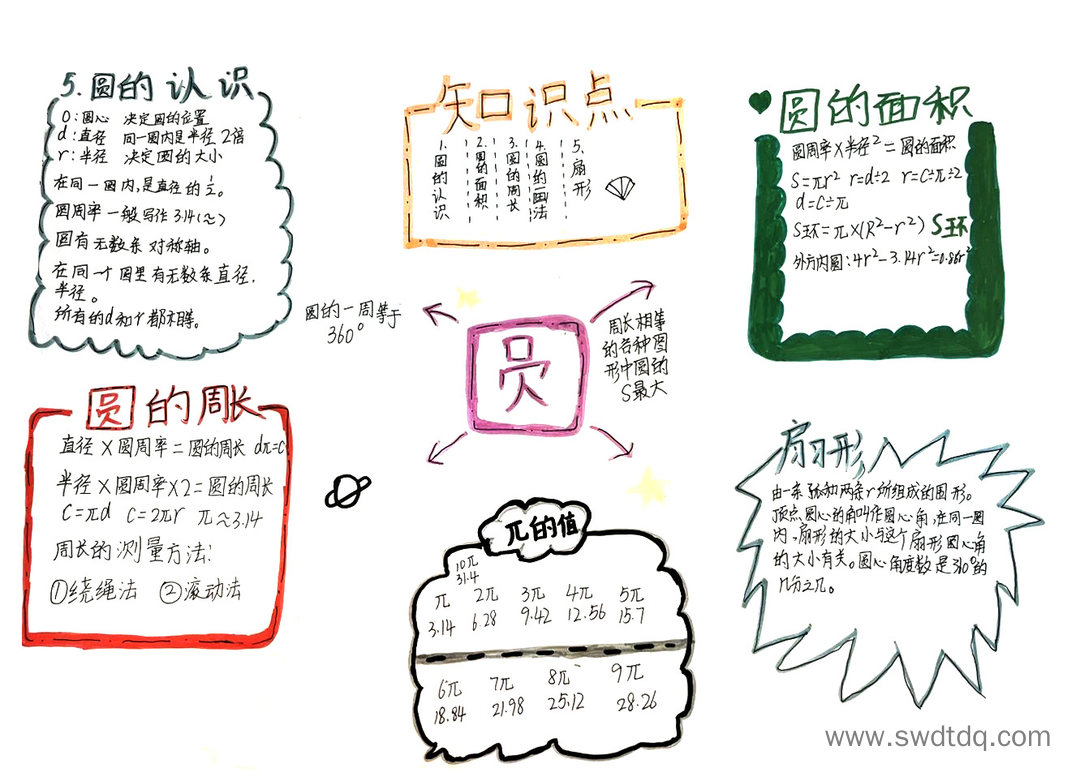 5.圆的认识
O:圆心 决定圆的位置
d:直径 同一圆内是半径2倍
r:半径 决定圆的大小
在同一圆内,是直径的1/2。
圆周率一般写作3.14(≈)
圆有无数条对称轴。
在同一个圆里有无数条直径,
半径。
所有的d和r都相等。
知识点
1.圆的认识
2.圆的面积
3.圆的周长
4.圆的画法
5、扇形
圆的面积
圆周率×半径²=圆的面积
S=πr² r=d÷2 r=C÷π÷2
d=C÷π
S环=π×(R²-r²) S环
外方内圆:4r²-3.14r²=0.86r²
圆的一周等于
360°
圆
周长相等
的各种图
形中圆的
S最大
圆的周长
直径×圆周率=圆的周长 dπ=C
半径×圆周率×2=圆的周长
C=πd C=2πr π≈3.14
周长的测量方法:
①绕绳法 ②滚动法
π的值
10π
31.4
π 2π 3π 4π 5π
3.14 6.28 9.42 12.56 15.7
6π 7π 8π 9π
18.84 21.98 25.12 28.26
扇形
由一条弧和两条r所组成的图形。
顶点圆心的角叫作圆心角,在同一圆
内,扇形的大小与这个扇形圆心角
的大小有关。圆心角度数是360°的
几分之几。
www.swdtdq.com